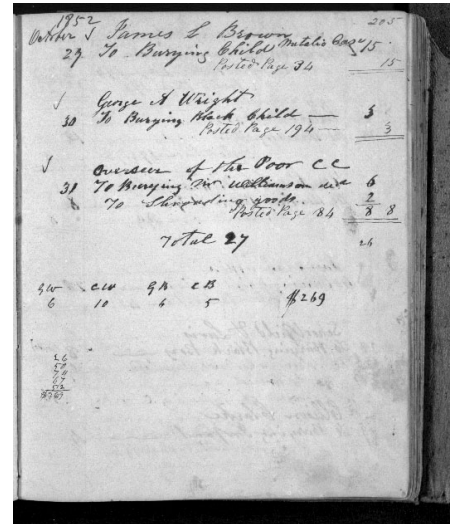 1852 205
October √ James L Brown
29 To Burying Child Metalic Case 15
Posted Page 34 15
√ George A Wright
30 To Burying Black Child — 3
Posted Page 194 — 3
√ Overseer of the Poor CC
31 To Burying Mr Williamson 6
To Shrouding goods 2
Posted Page 84 8 8
Total 27 26
GW CW GB CB
6 10 6 5 $269
26
50
67
52